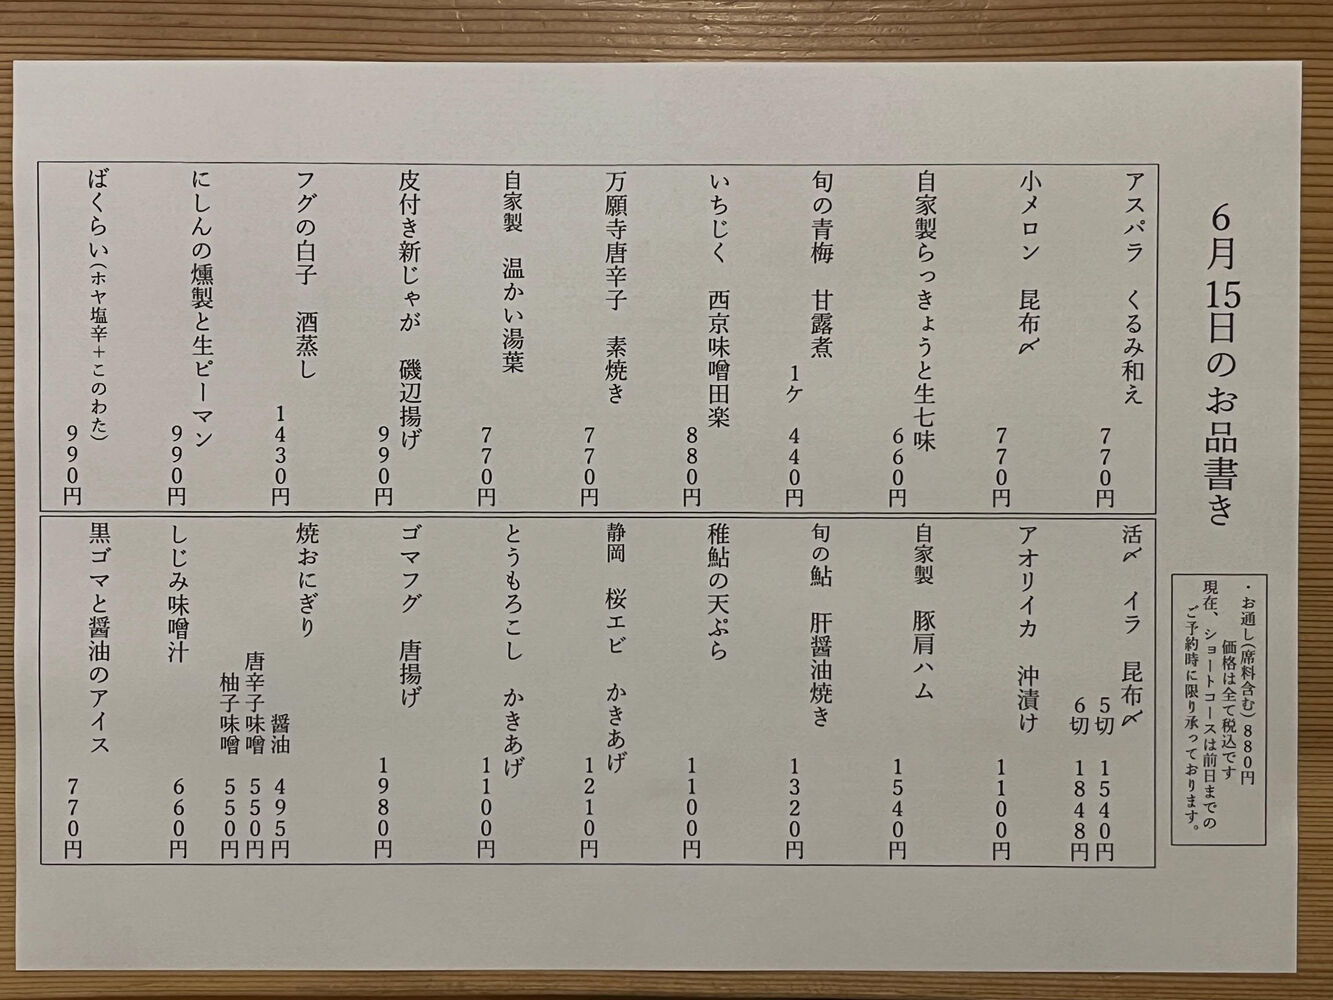 6月15日のお品書き
・お通し(席料含む)880円
価格は全て税込です
現在、ショートコースは前日までの
ご予約時に限り承っております。
アスパラ くるみ和え
770円
小メロン 昆布〆
770円
自家製らっきょうと生七味
660円
旬の青梅 甘露煮
1ケ 440円
いちじく 西京味噌田楽
880円
万願寺唐辛子 素焼き
770円
自家製 温かい湯葉
770円
皮付き新じゃが 磯辺揚げ
990円
フグの白子 酒蒸し
1430円
にしんの燻製と生ピーマン
990円
ばくらい(ホヤ塩辛+このわた)
990円
活〆 イラ 昆布〆
5切 1540円
6切 1848円
アオリイカ 沖漬け
1100円
自家製 豚肩ハム
1540円
旬の鮎 肝醤油焼き
1320円
稚鮎の天ぷら
1100円
静岡 桜エビ かきあげ
1210円
とうもろこし かきあげ
1100円
ゴマフグ 唐揚げ
1980円
焼おにぎり
醤油 495円
唐辛子味噌 550円
柚子味噌 550円
しじみ味噌汁
660円
黒ゴマと醤油のアイス
770円